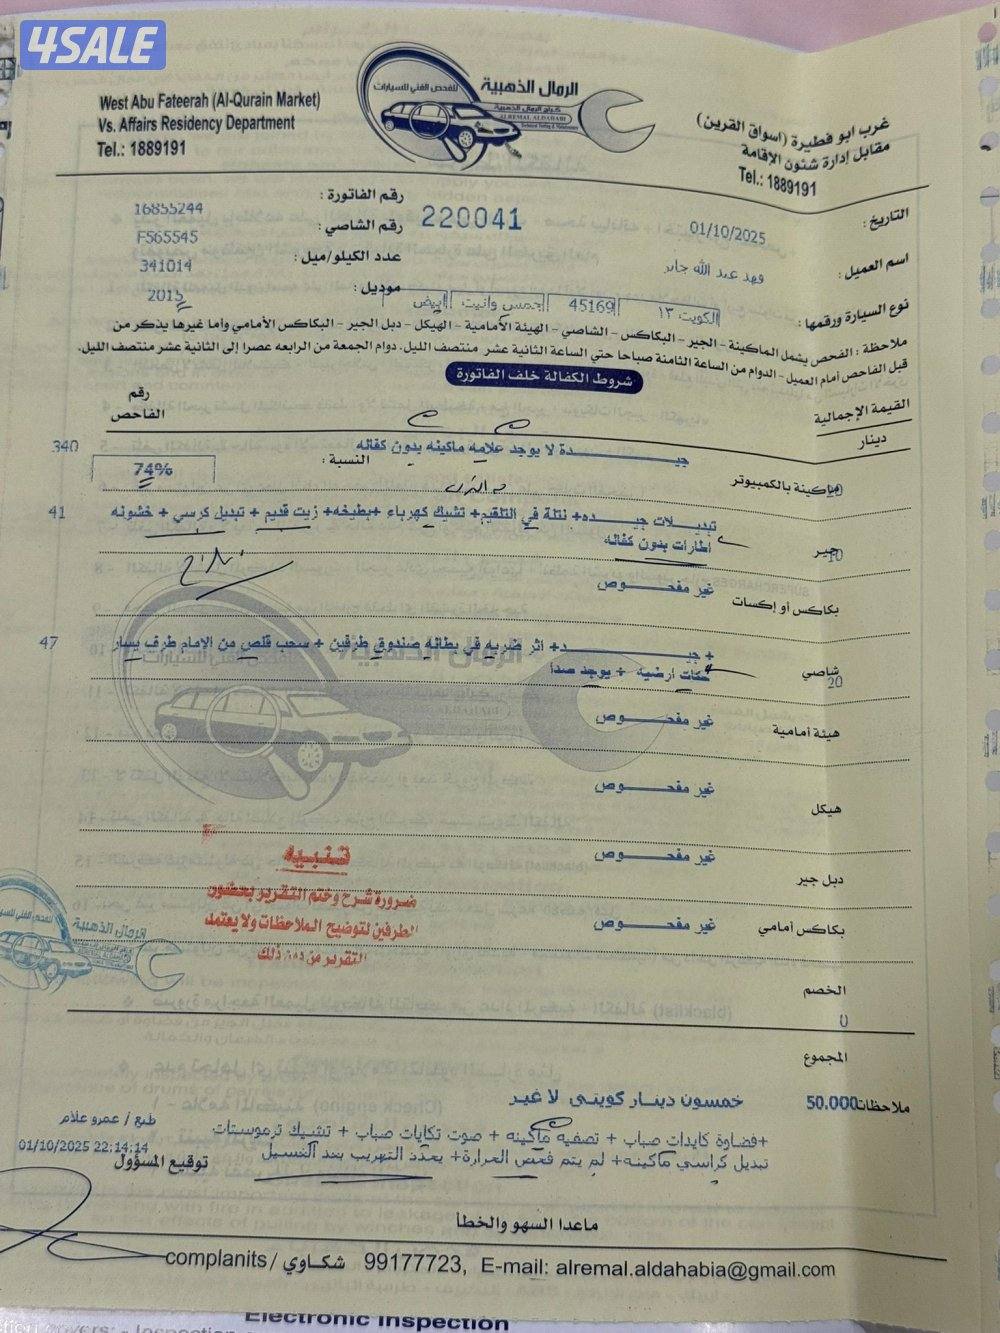 4SALE
الرمال الذهبية
للفحص الفني للسيارات
كراج الرمال الذهبية
ALREMAL ALDAHABI
Technical Testing & Maintenance
West Abu Fateerah (Al-Qurain Market)
Vs. Affairs Residency Department
Tel.: 1889191
غرب ابو فطيرة (اسواق القرين)
مقابل إدارة شئون الإقامة
Tel.: 1889191
التاريخ :
01/10/2025
220041
رقم الفاتورة :
16855244
رقم الشاصي :
F565545
اسم العميل :
فهد عبد الله جابر
عدد الكيلو/ميل :
341014
نوع السيارة ورقمها :
الكويت ١٣
45169
جمس وانيت
ابيض
موديل :
2015
ملاحظة : الفحص يشمل الماكينة - الجير - البكاكس - الشاصي - الهيئة الأمامية - الهيكل - دبل الجير - البكاكس الأمامي وأما غيرها يذكر من
قبل الفاحص أمام العميل - الدوام من الساعة الثامنة صباحا حتي الساعة الثانية عشر منتصف الليل. دوام الجمعة من الرابعه عصرا إلى الثانية عشر منتصف الليل.
شروط الكفالة خلف الفاتورة
القيمة الإجمالية
دينار
رقم
الفاحص
ماكينة بالكمبيوتر
جيــــدة لا يوجد علامه ماكينه بدون كفاله
340
النسبة :
74%
جير
10
تبديلات جيـــده+ نتلة في التلقيم+ تشيك كهرباء +بطيخه+ زيت قديم + تبديل كرسي + خشونه
41
اطارات بدون كفاله
بكاكس أو إكسات
غير مفحـــوص
شاصي
20
+ جيـــــد+ اثر ضربه في بطانه صندوق طرفين + سحب قلص من الإمام طرف يسار
47
+حكات ارضيه + يوجد صدأ
هيئة أمامية
غير مفحـــوص
هيكل
غير مفحـــوص
دبل جير
غير مفحـــوص
بكاكس أمامي
غير مفحـــوص
تنبيه
ضرورة شرح وختم التقرير بحضور
الطرفين لتوضيح الملاحظات ولا يعتمد
التقرير من دون ذلك
الخصم
0
المجموع
50.000
خمسون دينار كويتي لا غير
ملاحظات
+فضاوة كايدات صباب + تصفيه ماكينه + صوت تكايات صباب + تشيك ترموستات
تبديل كراسي ماكينه+ لم يتم فحص الحرارة+ يحدد التهريب بعد الغسيل
طبع / عمرو علام
01/10/2025 22:14:14
توقيع المسؤول
ماعدا السهو والخطأ
complanits / شكاوي 99177723, E-mail: alremal.aldahabia@gmail.com
Electronic Inspection